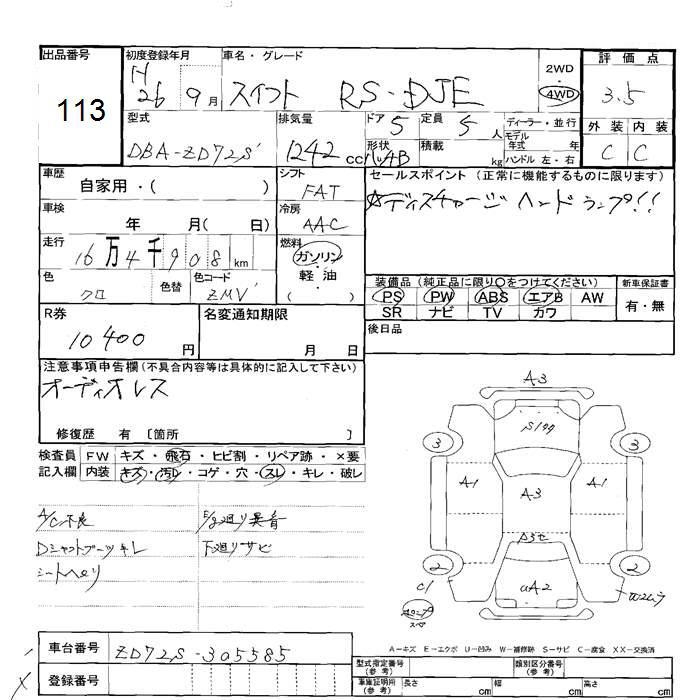 出品番号
113
初度登録年月
H
26 9月
車名・グレード
スイフト RS-DJE
2WD
・
4WD
評価点
3.5
外装 内装
C C
型式
DBA-ZD72S
排気量
1242 cc
ドア 5
形状
ハ4B
定員 5 人
積載 kg
ディーラー・並行
モデル年式 年
ハンドル 左・右
車歴
自家用・( )
シフト
FAT
車検
年 月( 日)
冷房
AAC
走行
16万4千908km
燃料
ガソリン
・
軽油
・
( )
色
クロ
色替
色コード
ZMV
セールスポイント (正常に機能するものに限ります)
☆ディスチャージ ヘッドランプ!!
装備品 (純正品に限り○をつけてください)
PS PW ABS エアB AW
SR ナビ TV カワ
新車保証書
有・無
R券
10400 円
名変通知期限
月 日
後日品
注意事項申告欄 (不具合内容等は具体的に記入して下さい)
オーディオレス
修復歴 有 〔箇所 〕
検査員記入欄
FW キズ・飛石・ヒビ割・リペア跡・×要
内装 キズ・汚レ・コゲ・穴・スレ・キレ・破レ
A/C不良
Dシャフトブーツキレ
シートヘタリ
E/g廻り異音
下廻リサビ
A3
3
3
A1
A3
A1
2
2
C1
UA2
スペ
A-キズ E-エクボ U-凹み W-補修跡 S-サビ C-腐食 XX-交換済
車台番号
ZD72S-305585
登録番号
型式指定番号
(参考)
類別区分番号
(参考)
車庫証明用
(参考)
長さ cm
幅 cm
高さ cm